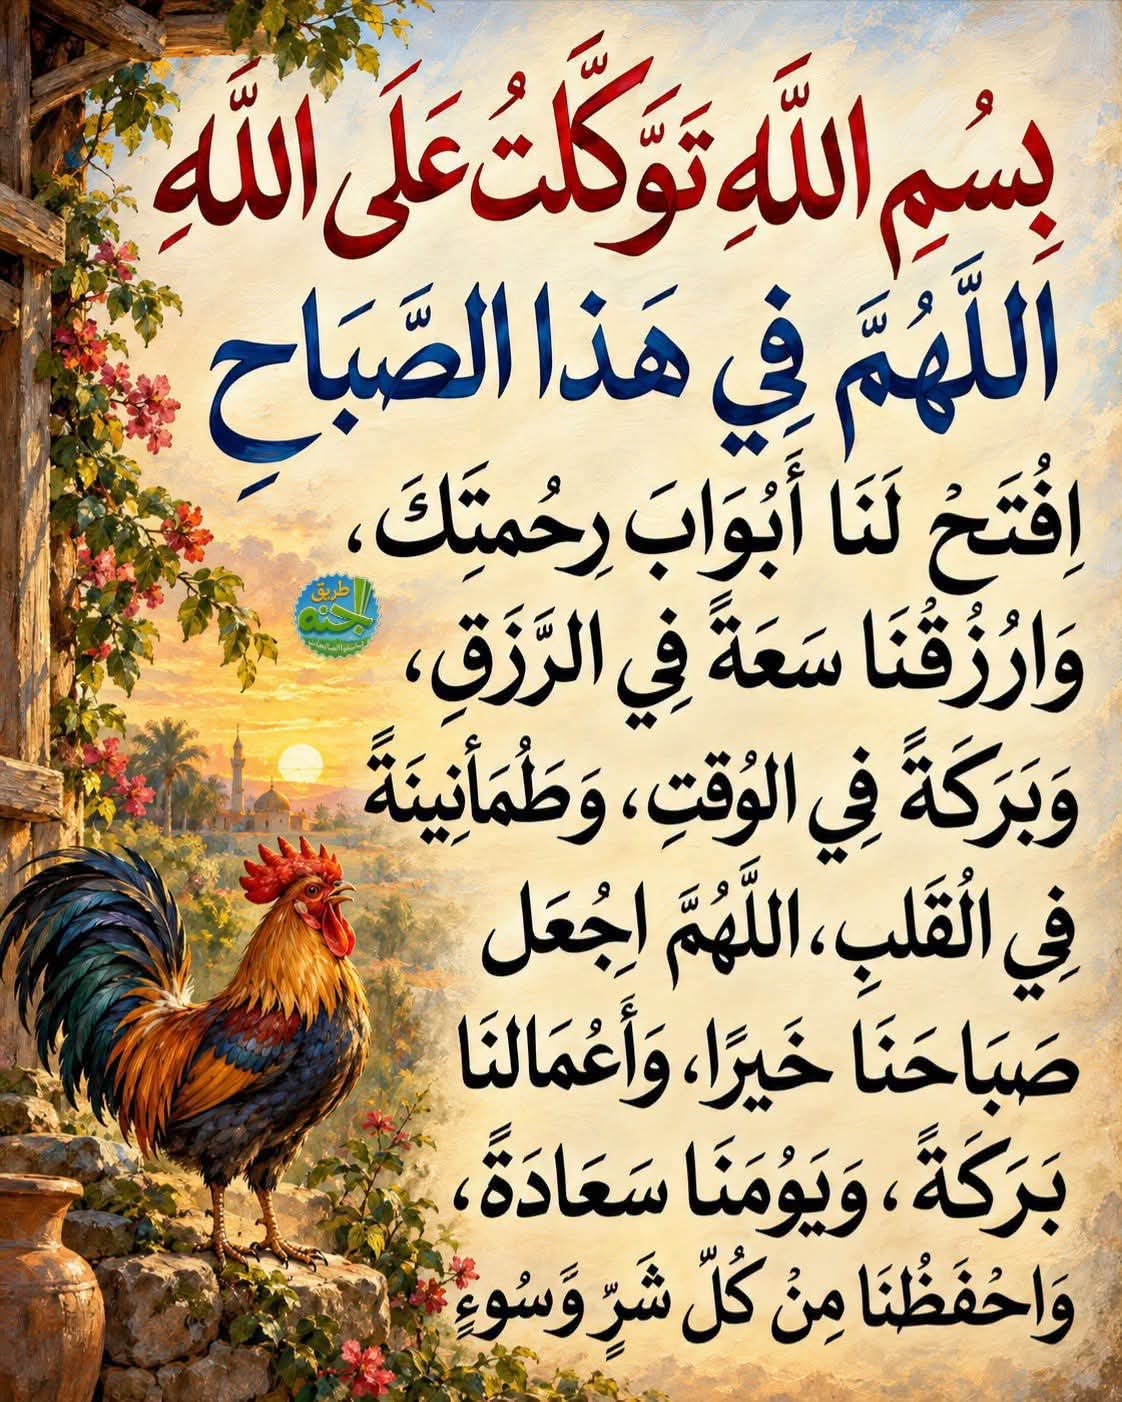 بِسُمِ اللَّهِ تَوَّكَّلتُ عَلَى اللَّهِ
اللَّهُمَّ فِي هَذا الصَّبَاحِ
اِفُتَحْ لَنَا أَبُوَابَ رِحُمتِكَ،
طريق
الجنه
وَارُزُقُنَا سَعَةً فِي الرَّزَقِ،
وَبَرَكَةً فِي الوُقتِ، وَطُمَأنِينَةً
فِي الُقَلبِ، اللَّهُمَّ اِجُعَل
صَبَاحَنَا خَيرًا، وَأَعُمَالنَا
بَرَكَةً، وَيَوُمَنَا سَعَادَةً،
وَاحْفَظُنَا مِنْ كُلّ شَرٍّ وَّسُوءٍ